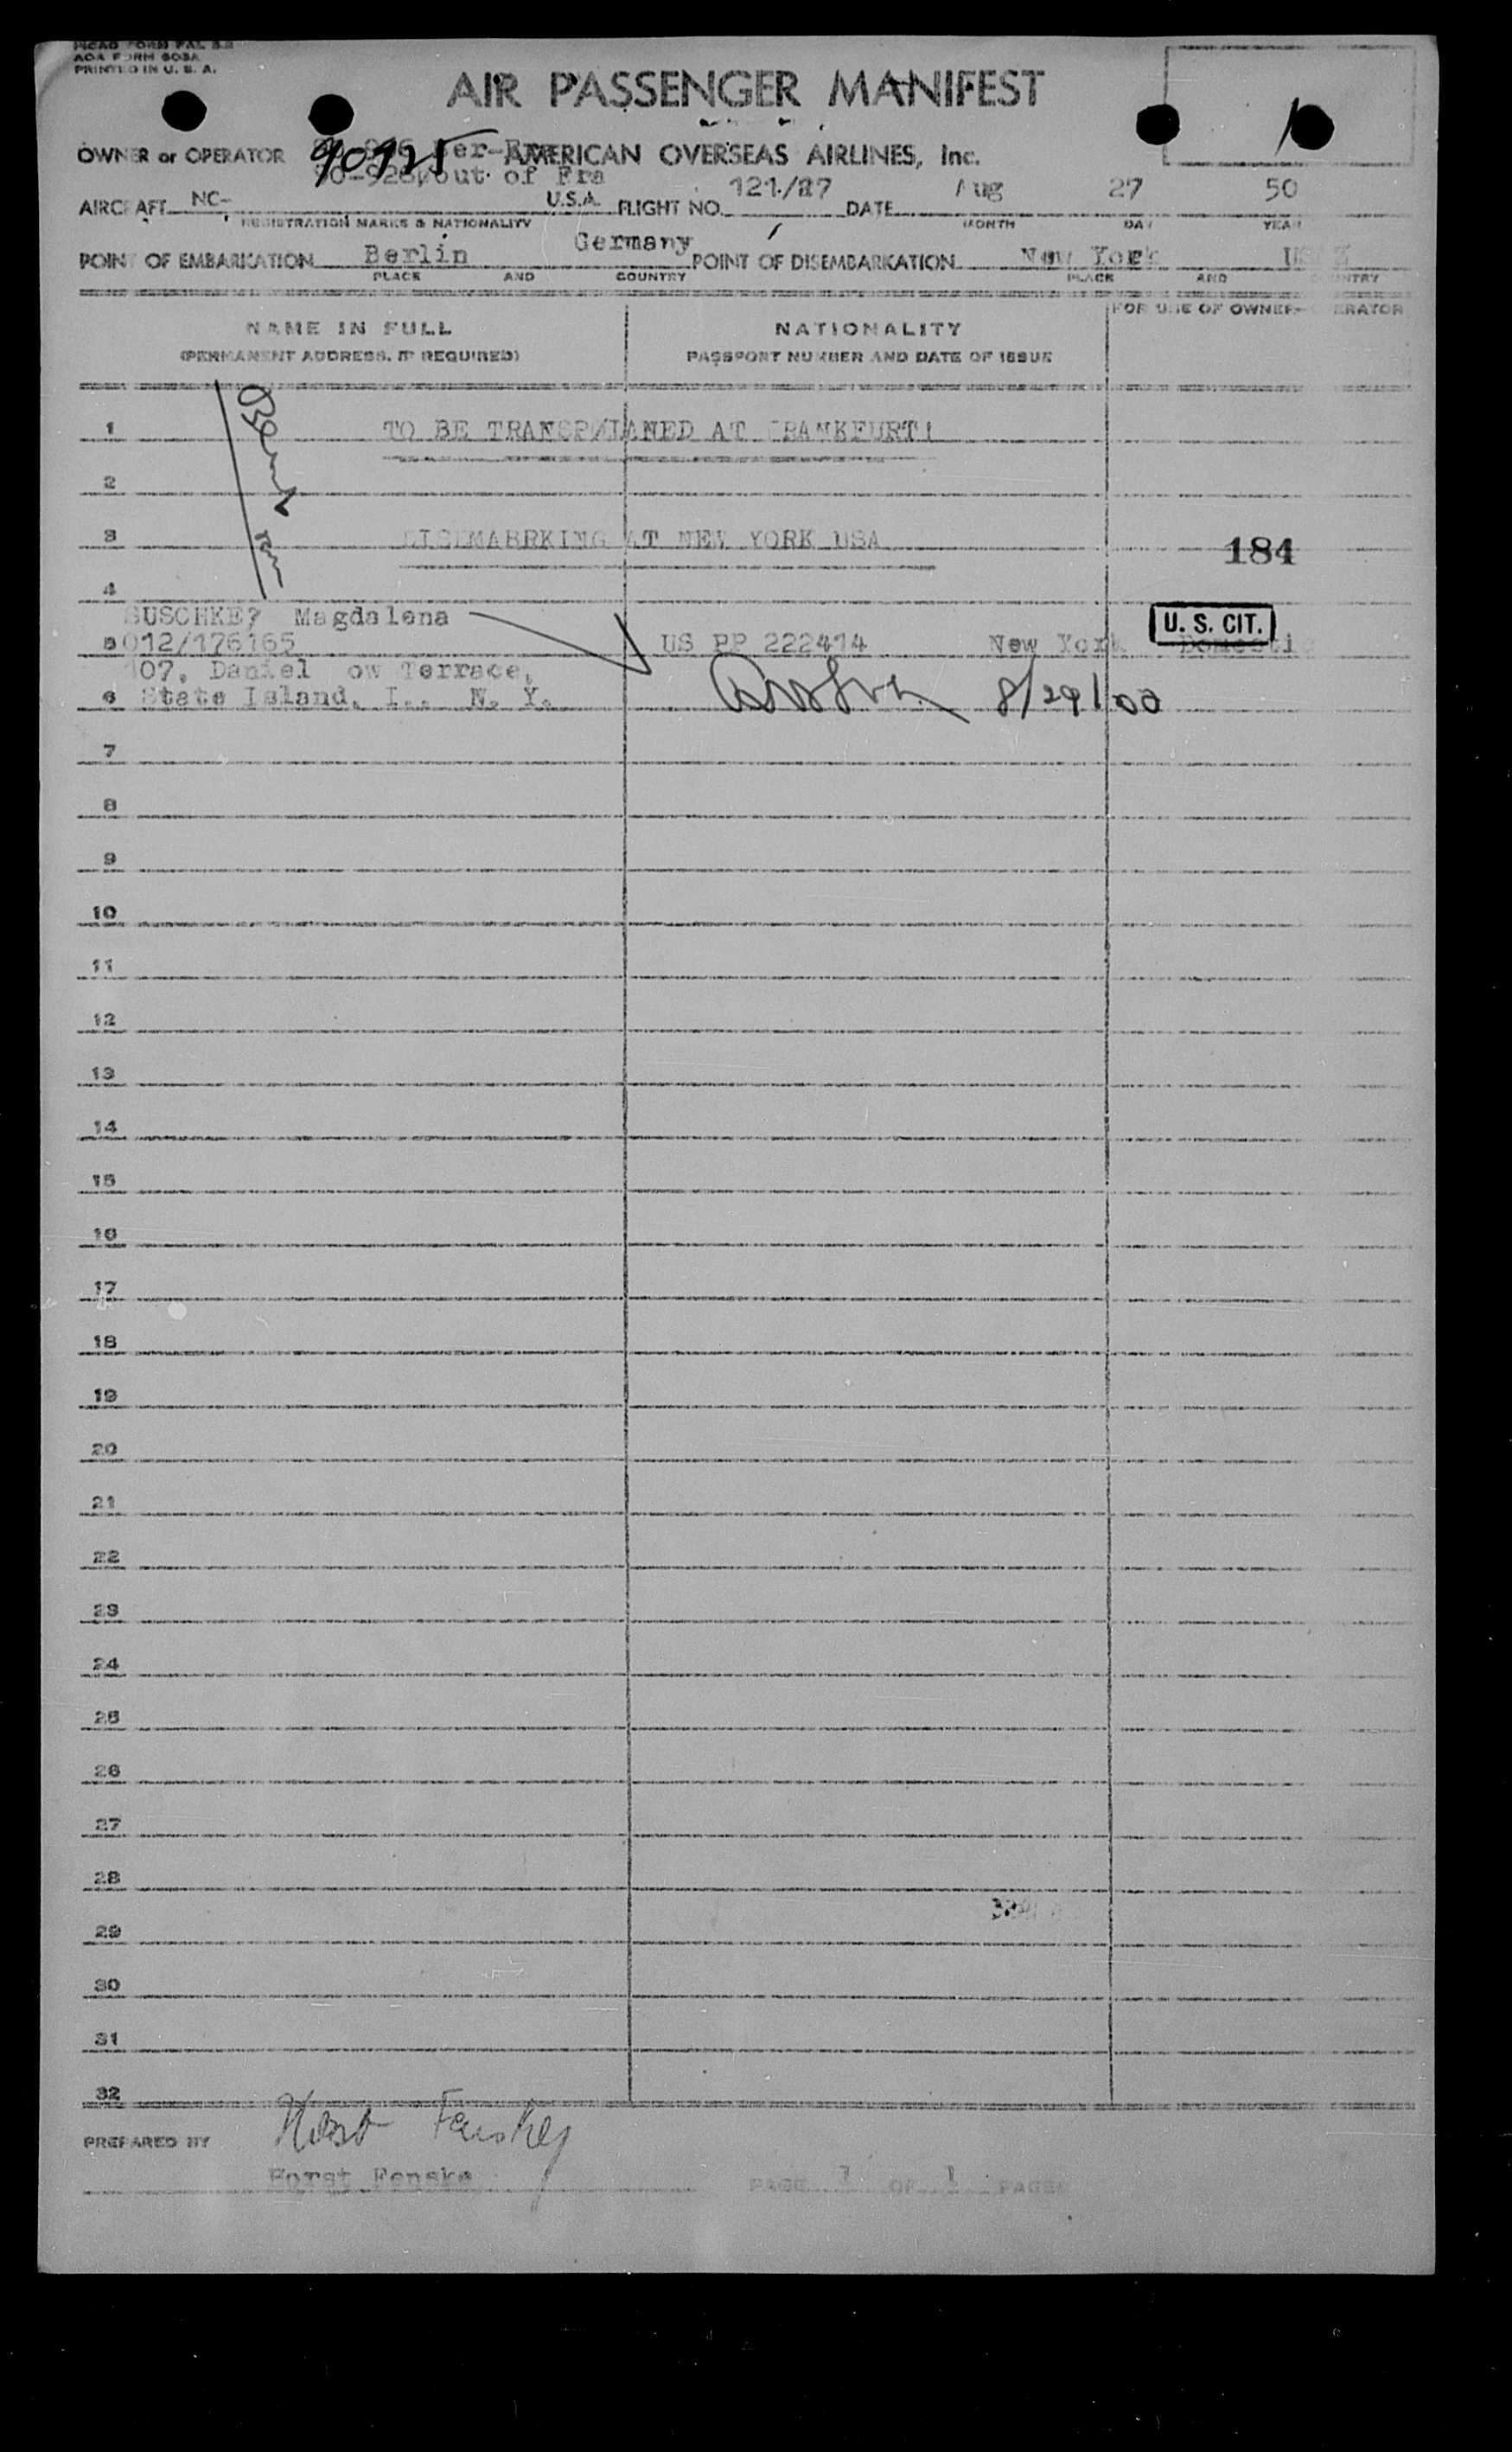 PICAO FORM PAL 3.2
AOA FORM 603A
PRINTED IN U. S. A.
AIR PASSENGER MANIFEST
OWNER or OPERATOR 90925 AMERICAN OVERSEAS AIRLINES, Inc.
out of Fra
AIRCRAFT NC- U.S.A. FLIGHT NO. 121/27 DATE Aug 27 50
REGISTRATION MARKS & NATIONALITY MONTH DAY YEAR
POINT OF EMBARKATION Berlin Germany POINT OF DISEMBARKATION New York
PLACE AND COUNTRY PLACE AND COUNTRY
NAME IN FULL NATIONALITY FOR USE OF OWNER-OPERATOR
(PERMANENT ADDRESS, IF REQUIRED) PASSPORT NUMBER AND DATE OF ISSUE
1 TO BE TRANSPØLANED AT FRANKFURT!
2
3 DISEMABRKING AT NEW YORK USA
184
4
SUSCHKE? Magdalena
U. S. CIT.
5 012/176165 US PP 222414 New York Domestic
107, Daniel ow Terrace,
6 State Island, I., N. Y. 8/29/
7
8
9
10
11
12
13
14
15
16
17
18
19
20
21
22
23
24
25
26
27
28
29
30
31
32
PREPARED BY Horst Fenske
Horst Fenske PAGE 1 OF 1 PAGES